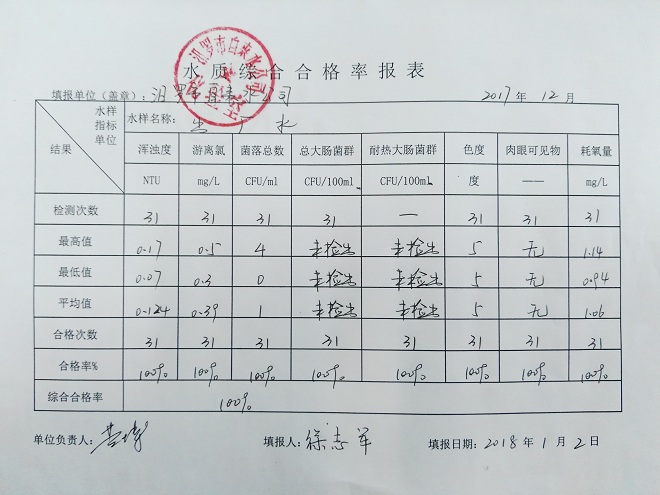 水质综合合格率报表
填报单位（盖章）：汨罗市自来水公司 2017年 12月
水样 指标 单位 结果
水样名称： 出厂水
浑浊度 游离氯 菌落总数 总大肠菌群 耐热大肠菌群 色度 肉眼可见物 耗氧量
NTU mg/L CFU/ml CFU/100ml CFU/100mL 度 —— mg/L
检测次数 31 31 31 31 — 31 31 31
最高值 0.17 0.5 4 未检出 未检出 5 无 1.14
最低值 0.07 0.3 0 未检出 未检出 5 无 0.94
平均值 0.124 0.39 1 未检出 未检出 5 无 1.06
合格次数 31 31 31 31 31 31 31 31
合格率% 100% 100% 100% 100% 100% 100% 100% 100%
综合合格率 100%
单位负责人： 填报人：徐志军 填报日期：2018年1月2日